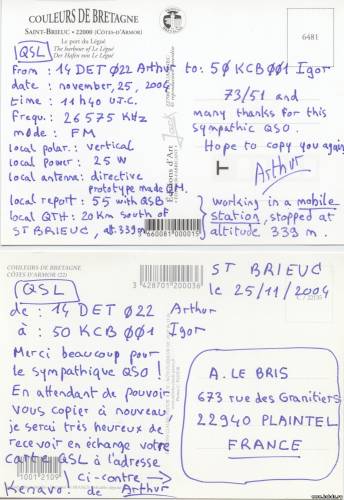 COULEURS DE BRETAGNE
SAINT-BRIEUC • 22000 (CÔTES-D'ARMOR)
Le port du Légué
The harbour of Le Légué
Der Hafen von Le Légué
6481
QSL
From : 14 DET Ø22 Arthur to : 5Ø KCB ØØ1 Igor
date : november, 25, 2004
time : 11 h 40 U.T.C.
Frequ : 26 575 KHz
mode : FM
local polar. : vertical
local power : 25 W
local antenna : directive
prototype made O.M.
local report : 55 with QSB
local QTH : 20 Km south of
ST BRIEUC, alt. 339 m.
73/51 and
many thanks for this
sympathic QSO.
Hope to copy you again
Arthur
working in a mobile
station, stopped at
altitude 339 m.
Editions d'Art
Jack
3 660081 000015
COULEURS DE BRETAGNE
CÔTES D'ARMOR (22)
3 428701 200036
ST BRIEUC
le 25/11/2004
QSL
de : 14 DET Ø22 Arthur
à : 50 KCB ØØ1 Igor
Merci beaucoup pour
le sympathique QSO !
En attendant de pouvoir
vous copier à nouveau
je serai très heureux de
recevoir en échange votre
carte QSL à l'adresse
ci-contre →
Kenavo ! de Arthur
1001 2109
A. LE BRIS
673 rue des Granitiers
22940 PLAINTEL
FRANCE